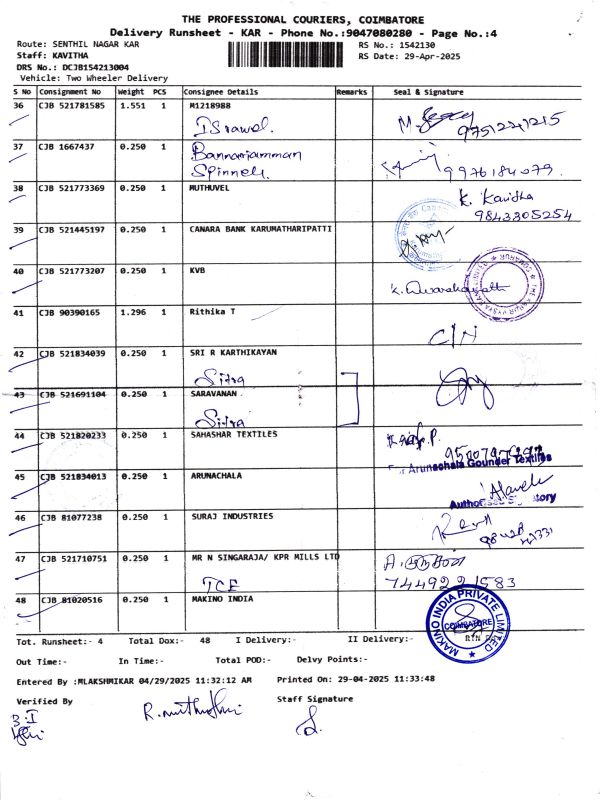 THE PROFESSIONAL COURIERS, COIMBATORE
Delivery Runsheet - KAR - Phone No.:9047080280 - Page No.:4
Route: SENTHIL NAGAR KAR
RS No.: 1542130
Staff: KAVITHA
RS Date: 29-Apr-2025
DRS No.: DCJB154213004
Vehicle: Two Wheeler Delivery
S No Consignment No Weight PCS Consignee Details Remarks Seal & Signature
36 CJB 521781585 1.551 1 M1218988
9751221215
37 CJB 1667437 0.250 1 Bannariamman
9976184079.
38 CJB 521773369 0.250 1 MUTHUVEL
K. Kavitha
9843305254
39 CJB 521445197 0.250 1 CANARA BANK KARUMATHARIPATTI
40 CJB 521773207 0.250 1 KVB
41 CJB 90390165 1.296 1 Rithika T
C/N
42 CJB 521834039 0.250 1 SRI R KARTHIKAYAN
Sitra
43 CJB 521691104 0.250 1 SARAVANAN
Sitra
44 CJB 521820233 0.250 1 SAHASHAR TEXTILES
Arunachala Gounder Textiles
45 CJB 521834013 0.250 1 ARUNACHALA
46 CJB 81077238 0.250 1 SURAJ INDUSTRIES
47 CJB 521710751 0.250 1 MR N SINGARAJA/ KPR MILLS LTD
TCE
7449221583
48 CJB 81020516 0.250 1 MAKINO INDIA
MAKINO INDIA PRIVATE LIMITED
COIMBATORE
Tot. Runsheet:- 4 Total Dox:- 48 I Delivery:- II Delivery:-
Out Time:- In Time:- Total POD:- Delvy Points:-
Entered By :MLAKSHMIKAR 04/29/2025 11:32:12 AM Printed On: 29-04-2025 11:33:48
Verified By
Staff Signature